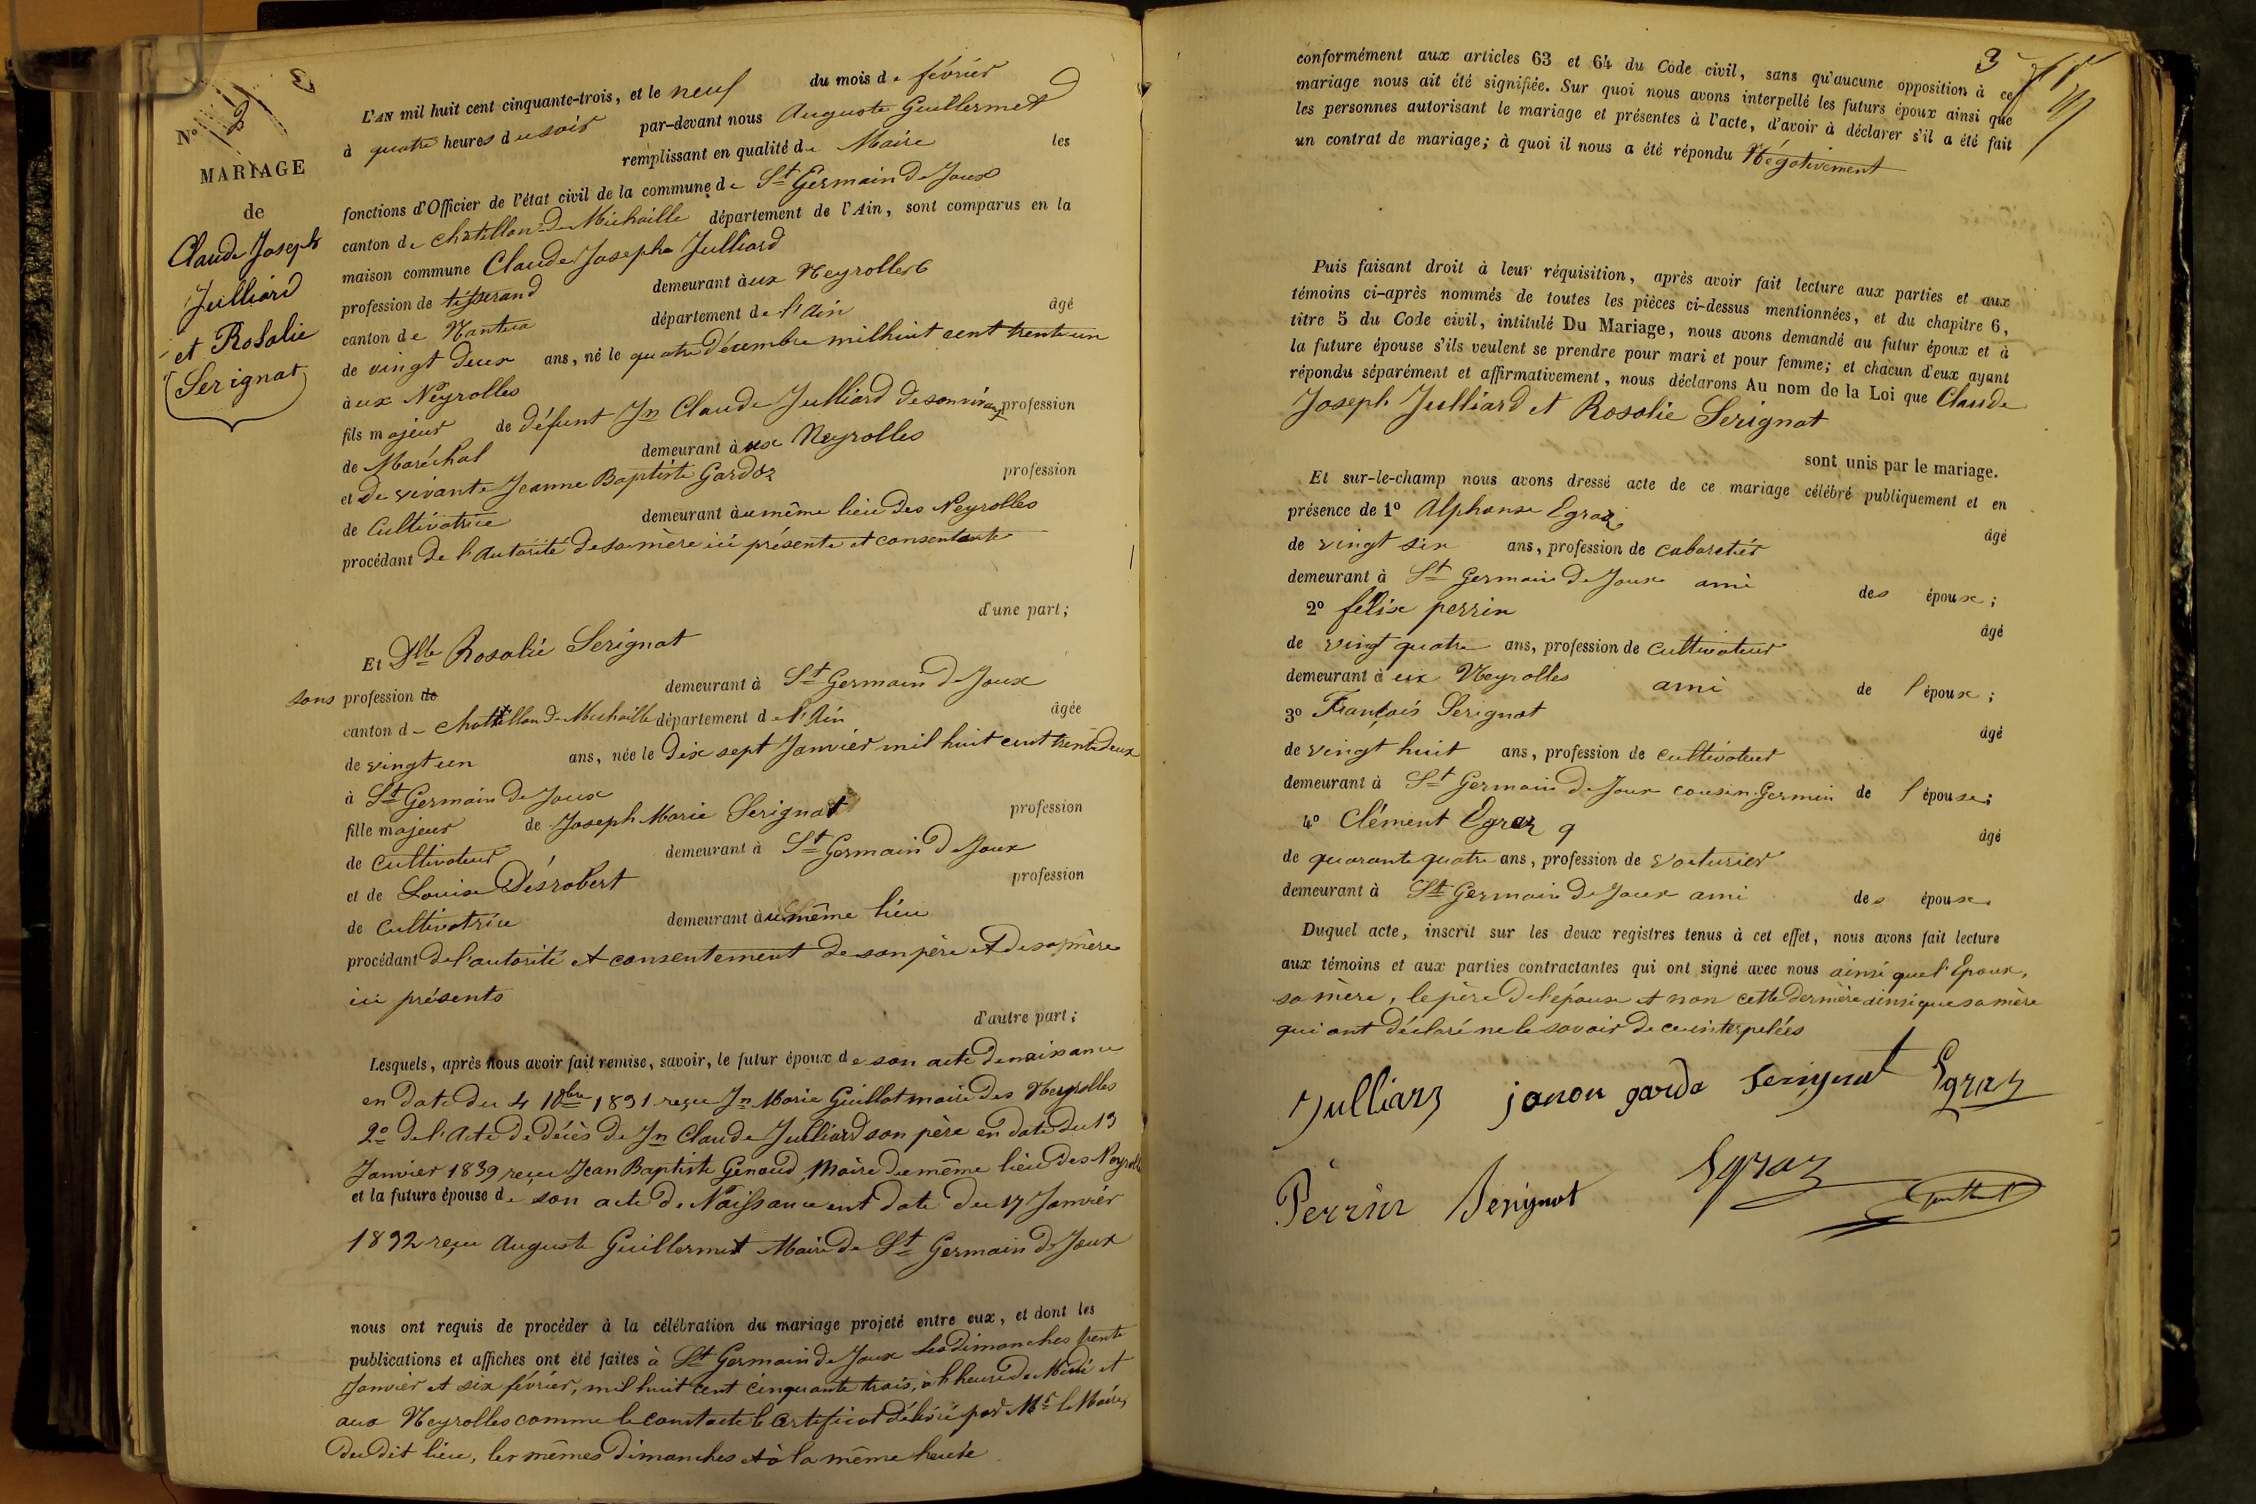 3
N.º 2
MARIAGE
de
Claude Joseph
Julliard
et Rosalie
Serignat
L'AN mil huit cent cinquante-trois, et le neuf du mois de février
à quatre heures du soir par-devant nous Auguste Guillermet
remplissant en qualité de Maire les
fonctions d'Officier de l'état civil de la commune de St Germain de Joux
canton de chatillon de Michaille département de l'Ain, sont comparus en la
maison commune Claude Joseph Julliard
profession de tisserand demeurant à ux Neyrolles
canton de Nantua département de l'Ain âgé
de vingt deux ans, né le quatre décembre mil huit cent trente un
à ux Neyrolles
fils majeur de défunt Jn Claude Julliard de son vivant profession
de Maréchal demeurant à ux Neyrolles
et de vivante Jeanne Baptiste Gardoz profession
de Cultivatrice demeurant à u même lieu des Neyrolles
procédant de l'autorité de sa mère ici présente et consentante
d'une part;
Et Dlle Rosalie Serignat
sans profession de demeurant à St Germain de Joux
canton de chatillon de Michaille département de l'Ain âgée
de vingt un ans, née le dix sept Janvier mil huit cent trente deux
à St Germain de Joux
fille majeur de Joseph Marie Serignat profession
de cultivateur demeurant à St Germain de Joux
et de Louise Désrobert profession
de Cultivatrice demeurant à u même lieu
procédant de l'autorité et consentement de son père et de sa mère
ici présents
d'autre part;
Lesquels, après nous avoir fait remise, savoir, le futur époux de son acte de naissance
en date du 4 10bre 1831 reçu Jn Marie Guillot maire des Neyrolles
2º de l'acte de décès de Jn Claude Julliard son père en date du 13
Janvier 1839 reçu Jean Baptiste Genoud, Maire du même lieu des Neyrolles
et la future épouse de son acte de Naissance ent date du 17 Janvier
1832 reçu Auguste Guillermet Maire de St Germain de Joux
nous ont requis de procéder à la célébration du mariage projeté entre eux, et dont les
publications et affiches ont été faites à St Germain de Joux les dimanches trente
Janvier et six février, mil huit cent cinquante trois, à l'heure de Midi et
aux Neyrolles comme le constacte le certificat délivré par Mr le Maire
du dit lieu, les mêmes dimanches et à la même heure
3
conformément aux articles 63 et 64 du Code civil, sans qu'aucune opposition à ce
mariage nous ait été signifiée. Sur quoi nous avons interpellé les futurs époux ainsi que
les personnes autorisant le mariage et présentes à l'acte, d'avoir à déclarer s'il a été fait
un contrat de mariage; à quoi il nous a été répondu Négativement
Puis faisant droit à leur réquisition, après avoir fait lecture aux parties et aux
témoins ci-après nommés de toutes les pièces ci-dessus mentionnées, et du chapitre 6,
titre 5 du Code civil, intitulé Du Mariage, nous avons demandé au futur époux et à
la future épouse s'ils veulent se prendre pour mari et pour femme; et chacun d'eux ayant
répondu séparément et affirmativement, nous déclarons Au nom de la Loi que Claude
Joseph Julliard et Rosalie Serignat
sont unis par le mariage.
Et sur-le-champ nous avons dressé acte de ce mariage célébré publiquement et en
présence de 1º Alphonse Egraz âgé
de vingt six ans, profession de cabaretier
demeurant à St Germain de Joux ami des époux;
2º félix perrin âgé
de vingt quatre ans, profession de cultivateur
demeurant à ux Neyrolles ami de l'époux;
3º François Serignat âgé
de vingt huit ans, profession de cultivateur
demeurant à St Germain de Joux cousin Germin de l'épouse;
4º Clément Egraz âgé
de quarante quatre ans, profession de voiturier
demeurant à St Germain de Joux ami des époux.
Duquel acte, inscrit sur les deux registres tenus à cet effet, nous avons fait lecture
aux témoins et aux parties contractantes qui ont signé avec nous ainsi que l'Epoux,
sa mère, le père de l'épouse et non cette dernière ainsi que sa mère
qui ont déclaré ne le savoir de ce interpelées
Julliard janon gardo Serignat Egraz
Perrin Serignat Egraz